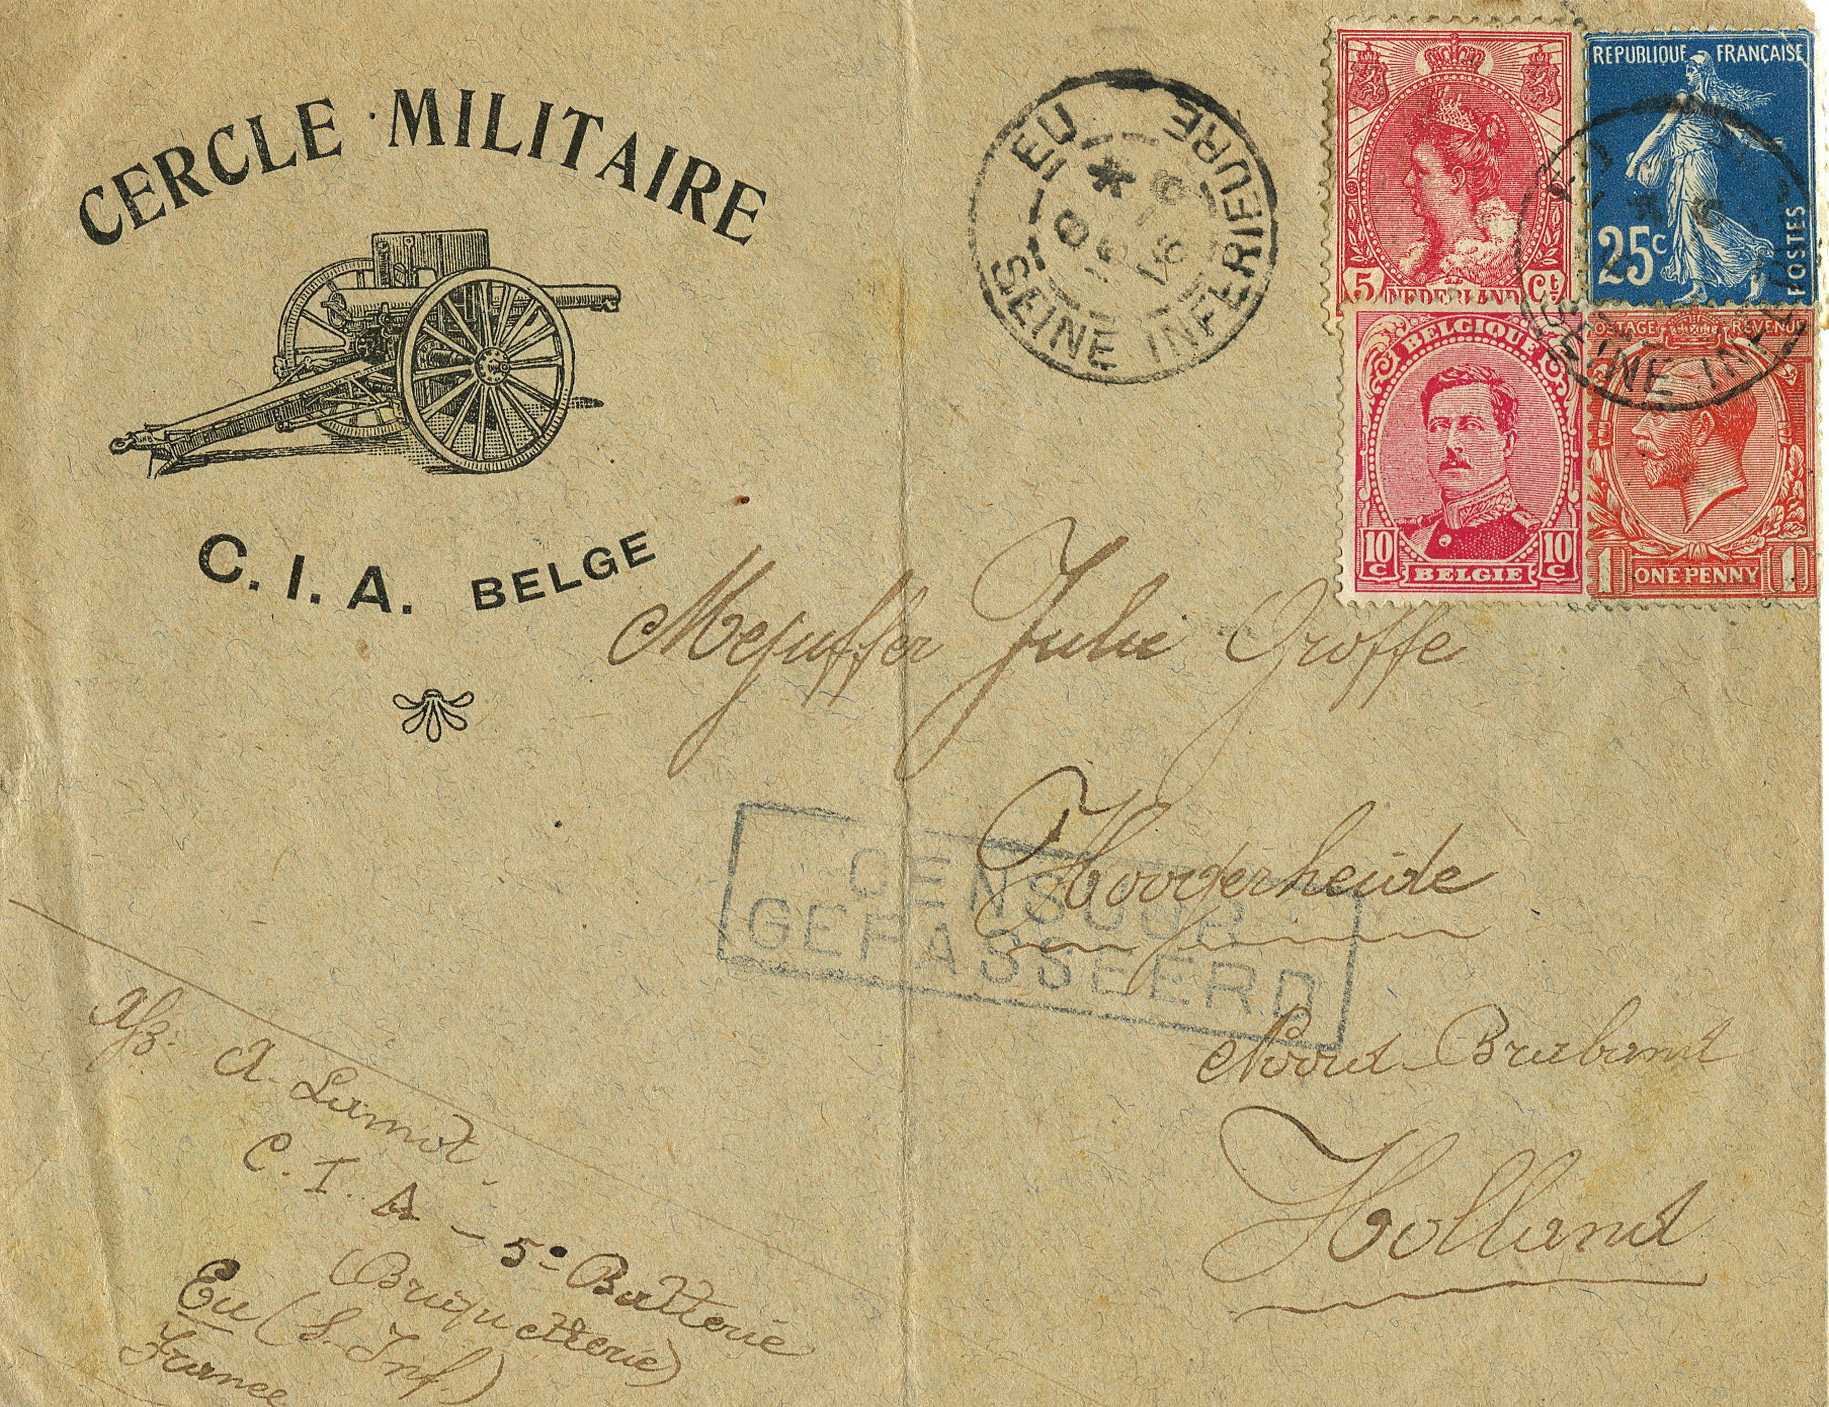 CERCLE MILITAIRE
C. I. A. BELGE
EU
SEINE INFERIEURE
5 NEDERLAND Ct
REPUBLIQUE FRANÇAISE
25c
POSTES
BELGIQUE
10c 10c
BELGIE
POSTAGE REVENUE
1 ONE PENNY 1
SEINE INF
Mejuffer Julie Groffe
Hoogerheide
CENSUUR
GEPASSEERD
Noord-Braband
Holland
Afz: A. Lamot
C. I. A - 5e Batterie
(Briquetterie)
Eu (S. Inf.)
France